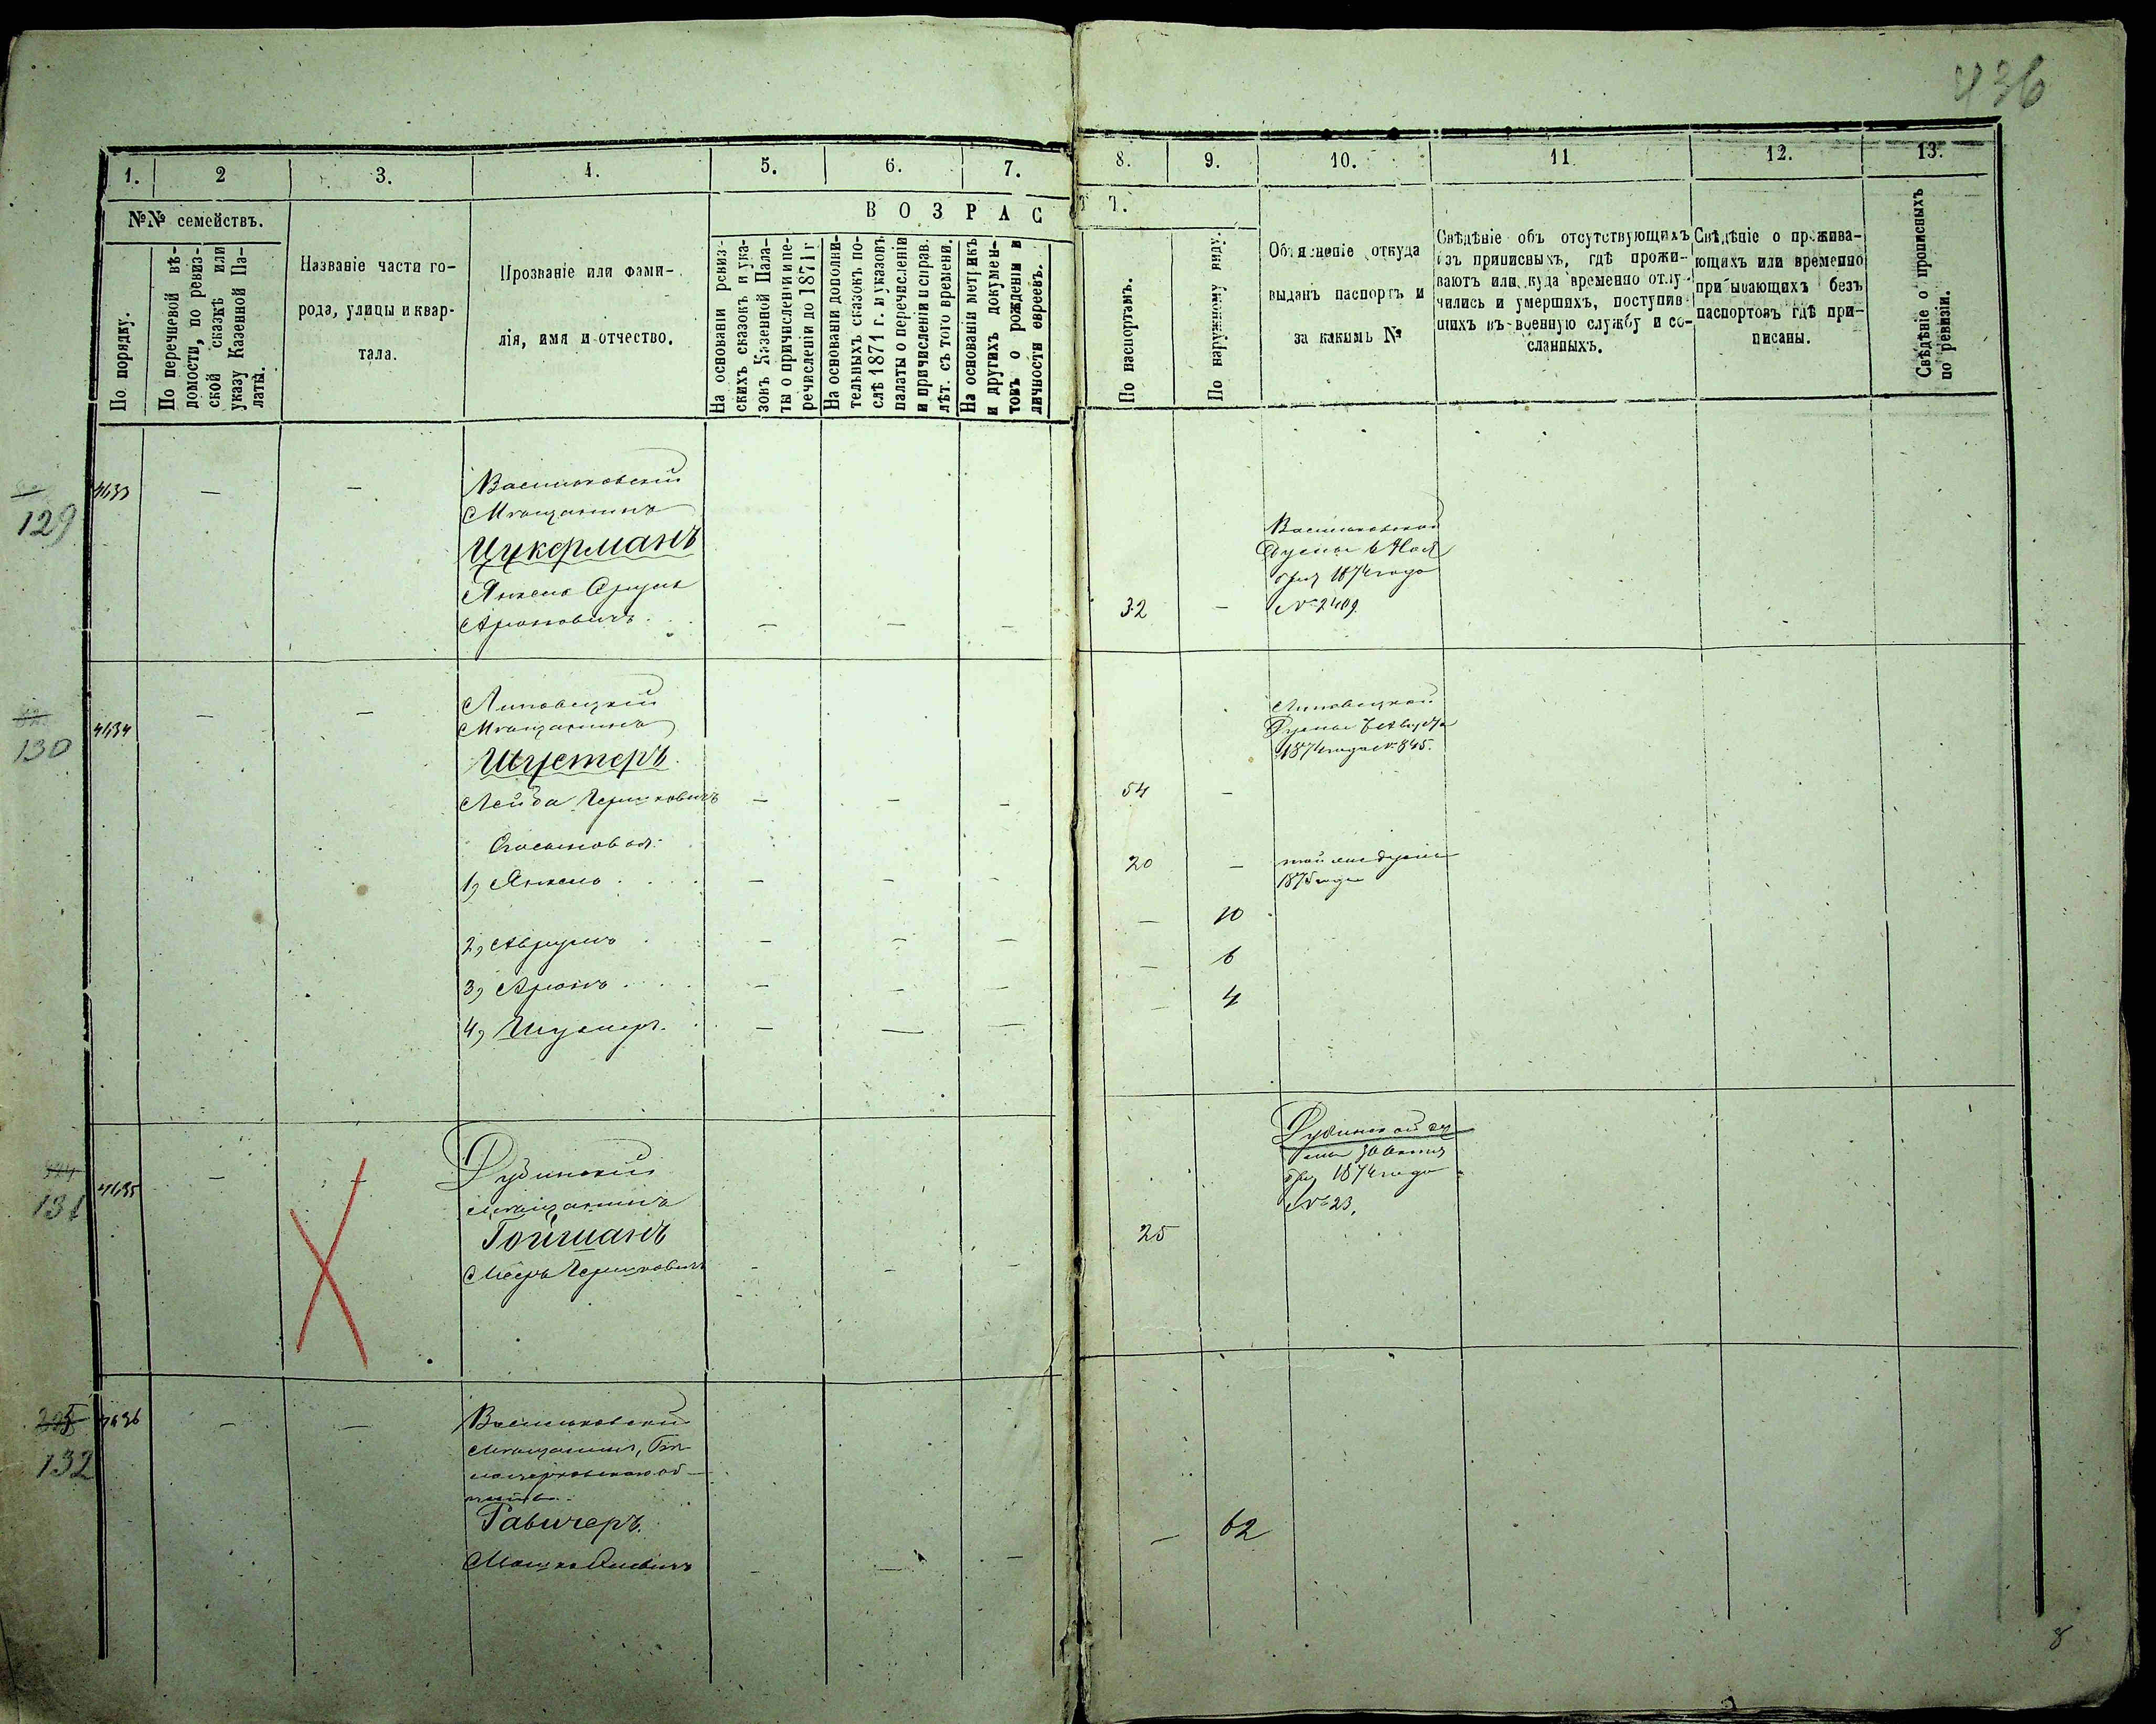 436
1. 2 3. 4. 5. 6. 7. 8. 9. 10. 11 12. 13.
№№ семействъ.
По порядку.
По перечневой вѣ-
домости, по ревиз-
ской сказкѣ или
указу Казенной Па-
латы.
Названіе части го-
рода, улицы и квар-
тала.
Прозваніе или фами-
лія, имя и отчество.
ВОЗРАСТ Т.
На основаніи ревиз-
скихъ сказокъ и ука-
зовъ Казенной Пала-
ты о причисленіи и пе-
речисленіи до 1871 г
На основаніи дополни-
тельныхъ сказокъ по-
слѣ 1871 г. и указовъ
палаты о перечисленіи
и причисленіи и справ.
лѣт. съ того времени.
На основаніи метрикъ
и другихъ докумен-
товъ о рожденіи и
личности евреевъ.
По паспортамъ.
По наружному виду.
Объясненіе откуда
выданъ паспортъ и
за какимъ №
Свѣдѣніе объ отсутствующихъ
изъ приписныхъ, гдѣ прожи-
ваютъ или куда временно отлу-
чились и умершихъ, поступив-
шихъ въ военную службу и со-
сланныхъ.
Свѣдѣніе о прожива-
ющихъ или временно
пребывающихъ безъ
паспортовъ гдѣ при-
писаны.
Свѣдѣніе о прописныхъ
по ревизіи.
129
4633 — —
Васильковскій
Мѣщанинъ
Цукерманъ
Янкель Сруль
Ароновичъ — — —
32 —
Васильковской
Думы 6 Нояб
бря 1874 года
№ 2409
130
4634 — —
Липовецкій
Мѣщанинъ
Шустеръ.
Лейба Гершковичъ — — —
54 —
Липовецкой
Думы 6 Августа
1874 года № 845.
Сыновья:
1, Янкель — — —
20 —
той же думы
1875 года
2, Аврумъ — — —
— 10
3, Аронъ — — —
— 6
4, — — —
— 4
131
4635 — —
Дубинскій
мѣщанинъ
Гойшанъ
Мееръ Гершковичъ — — —
25
Дубинской ду
мы 30 Октя
бря 1874 года
№ 23.
325
132
4636 — —
Васильковскій
мѣщанинъ, Бѣ-
лоцерковскаго об-
щества
Равичеръ.
Мошко — — —
— 62
8